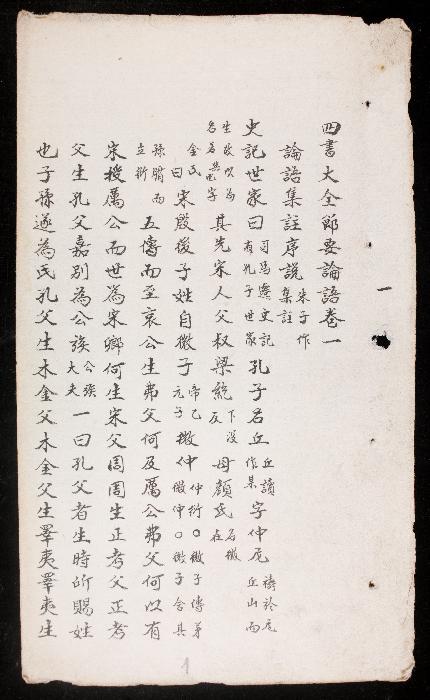 四書大全節要論語卷一
論語集註序說 朱子作集註
史記世家曰 司馬遷史記有孔子世家 孔子名丘 丘讀作某 字仲尼 禱於尼丘山而
生故以為名若其字 其先宋人父叔梁紇 下沒反 母顏氏 名徵在
金氏曰宋殷後子姓自微子 帝乙元子 微仲 仲衍○微子傳弟微仲○微子舍其
孫腯而立衍 五傳而至哀公生弗父何及厲公弗父何以有
宋授厲公而世為宋卿何生宋父周周生正考父正考
父生孔父嘉別為公族 公族大夫 一曰孔父者生時所賜姓
也子孫遂為氏孔父生木金父木金父生睪夷睪夷生
一
1